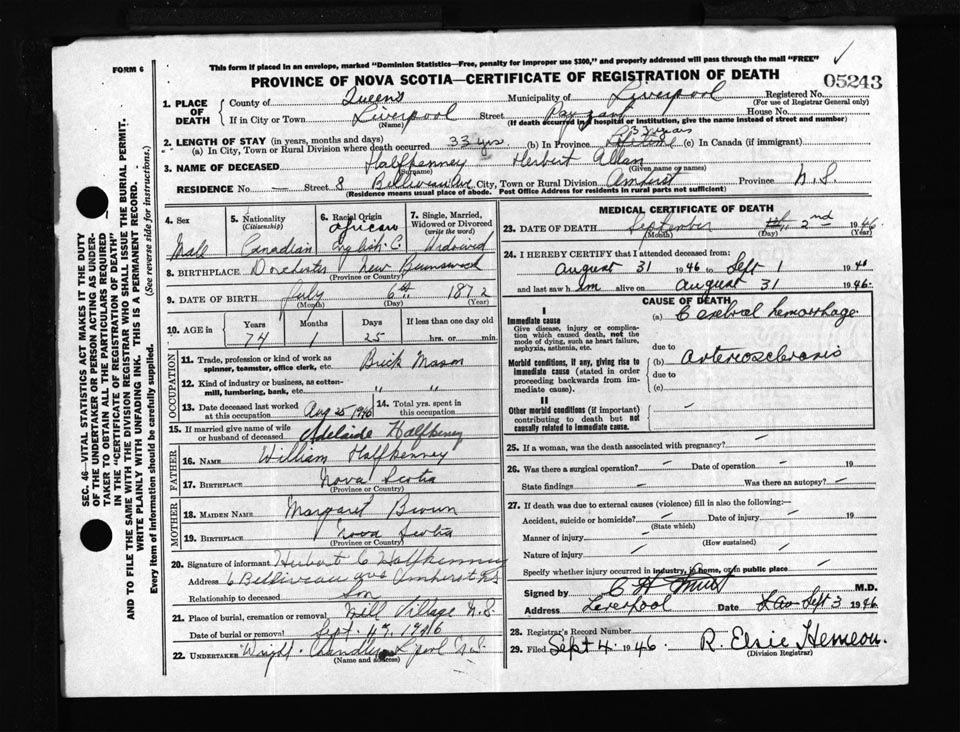 This form if placed in an envelope, marked "Dominion Statistics—Free, penalty for improper use $300," and properly addressed will pass through the mail "FREE"
FORM 6
PROVINCE OF NOVA SCOTIA—CERTIFICATE OF REGISTRATION OF DEATH
05243
1. PLACE OF DEATH
County of Queens Municipality of Liverpool Registered No.
(For use of Registrar General only)
If in City or Town Liverpool Street House No.
(Name) (If death occurred in a hospital or institution, give the name instead of street and number)
2. LENGTH OF STAY (in years, months and days)
(a) In City, Town or Rural Division where death occurred 33 yrs. (b) In Province (c) In Canada (if immigrant)
3. NAME OF DECEASED Halfkenney Herbert Allan
(Surname) (Given name or names)
RESIDENCE No. — Street 8 Belliveau Ave City, Town or Rural Division Amherst Province N.S.
(Residence means usual place of abode. Post Office Address for residents in rural parts not sufficient)
4. Sex Male
5. Nationality (Citizenship) Canadian
6. Racial Origin African English C
7. Single, Married, Widowed or Divorced (write the word) Widowed
8. BIRTHPLACE Dorchester New Brunswick
(Province or Country)
9. DATE OF BIRTH July 6th 1872
(Month) (Day) (Year)
10. AGE in Years Months Days If less than one day old
74 1 25 hrs. or min.
OCCUPATION
11. Trade, profession or kind of work as spinner, teamster, office clerk, etc. Brick Mason
12. Kind of industry or business, as cotton-mill, lumbering, bank, etc. " "
13. Date deceased last worked at this occupation Aug 25 1946
14. Total yrs. spent in this occupation
15. If married give name of wife or husband of deceased Adelaide Halfkenney
FATHER
16. NAME William Halfkenney
17. BIRTHPLACE Nova Scotia
(Province or Country)
MOTHER
18. MAIDEN NAME Margaret Brown
19. BIRTHPLACE Nova Scotia
(Province or Country)
20. Signature of informant Herbert C Halfkenney
Address 6 Belliveau ave Amherst N.S
Relationship to deceased Son
21. Place of burial, cremation or removal Mill Village N.S.
Date of burial or removal Sept. 4th, 1946
22. UNDERTAKER Wright - Chandler L'pool N.S.
(Name and address)
MEDICAL CERTIFICATE OF DEATH
23. DATE OF DEATH September 2nd 1946
(Month) (Day) (Year)
24. I HEREBY CERTIFY that I attended deceased from:
August 31 1946 to Sept 1 1946
and last saw him alive on August 31 1946.
CAUSE OF DEATH
I
Immediate cause
Give disease, injury or complication which caused death, not the mode of dying, such as heart failure, asphyxia, asthenia, etc.
(a) Cerebral hemorrhage
due to
Morbid conditions, if any, giving rise to immediate cause (stated in order proceeding backwards from immediate cause).
(b) Arteriosclerosis
due to
(c)
II
Other morbid conditions (if important) contributing to death but not causally related to immediate cause.
25. If a woman, was the death associated with pregnancy?
26. Was there a surgical operation? Date of operation 19
State findings Was there an autopsy?
27. If death was due to external causes (violence) fill in also the following:—
Accident, suicide or homicide? Date of injury 19
(State which)
Manner of injury
(How sustained)
Nature of injury
Specify whether injury occurred in industry, in home, or in public place
Signed by M.D.
Address Liverpool Date Sept 3 1946
28. Registrar's Record Number
29. Filed Sept 4. 1946. R. Elsie Hemeon.
(Division Registrar)
SEC. 46—VITAL STATISTICS ACT MAKES IT THE DUTY
OF THE UNDERTAKER OR PERSON ACTING AS UNDER-
TAKER TO OBTAIN ALL THE PARTICULARS REQUIRED
IN THE "CERTIFICATE OF REGISTRATION OF DEATH"
AND TO FILE THE SAME WITH THE DIVISION REGISTRAR WHO SHALL ISSUE THE BURIAL PERMIT.
WRITE PLAINLY WITH UNFADING INK. THIS IS A PERMANENT RECORD.
Every item of information should be carefully supplied. (See reverse side for instructions.)